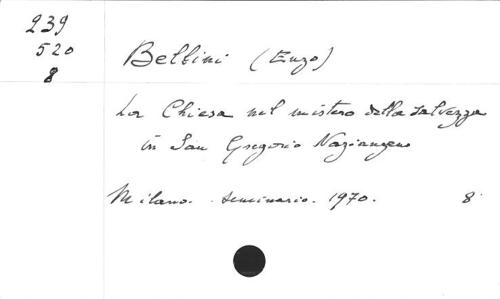 239
520
8
Bellini (Enzo)
La Chiesa nel mistero della salvezza
in San Gregorio Nazianzeno
Milano. seminario. 1970. 8°